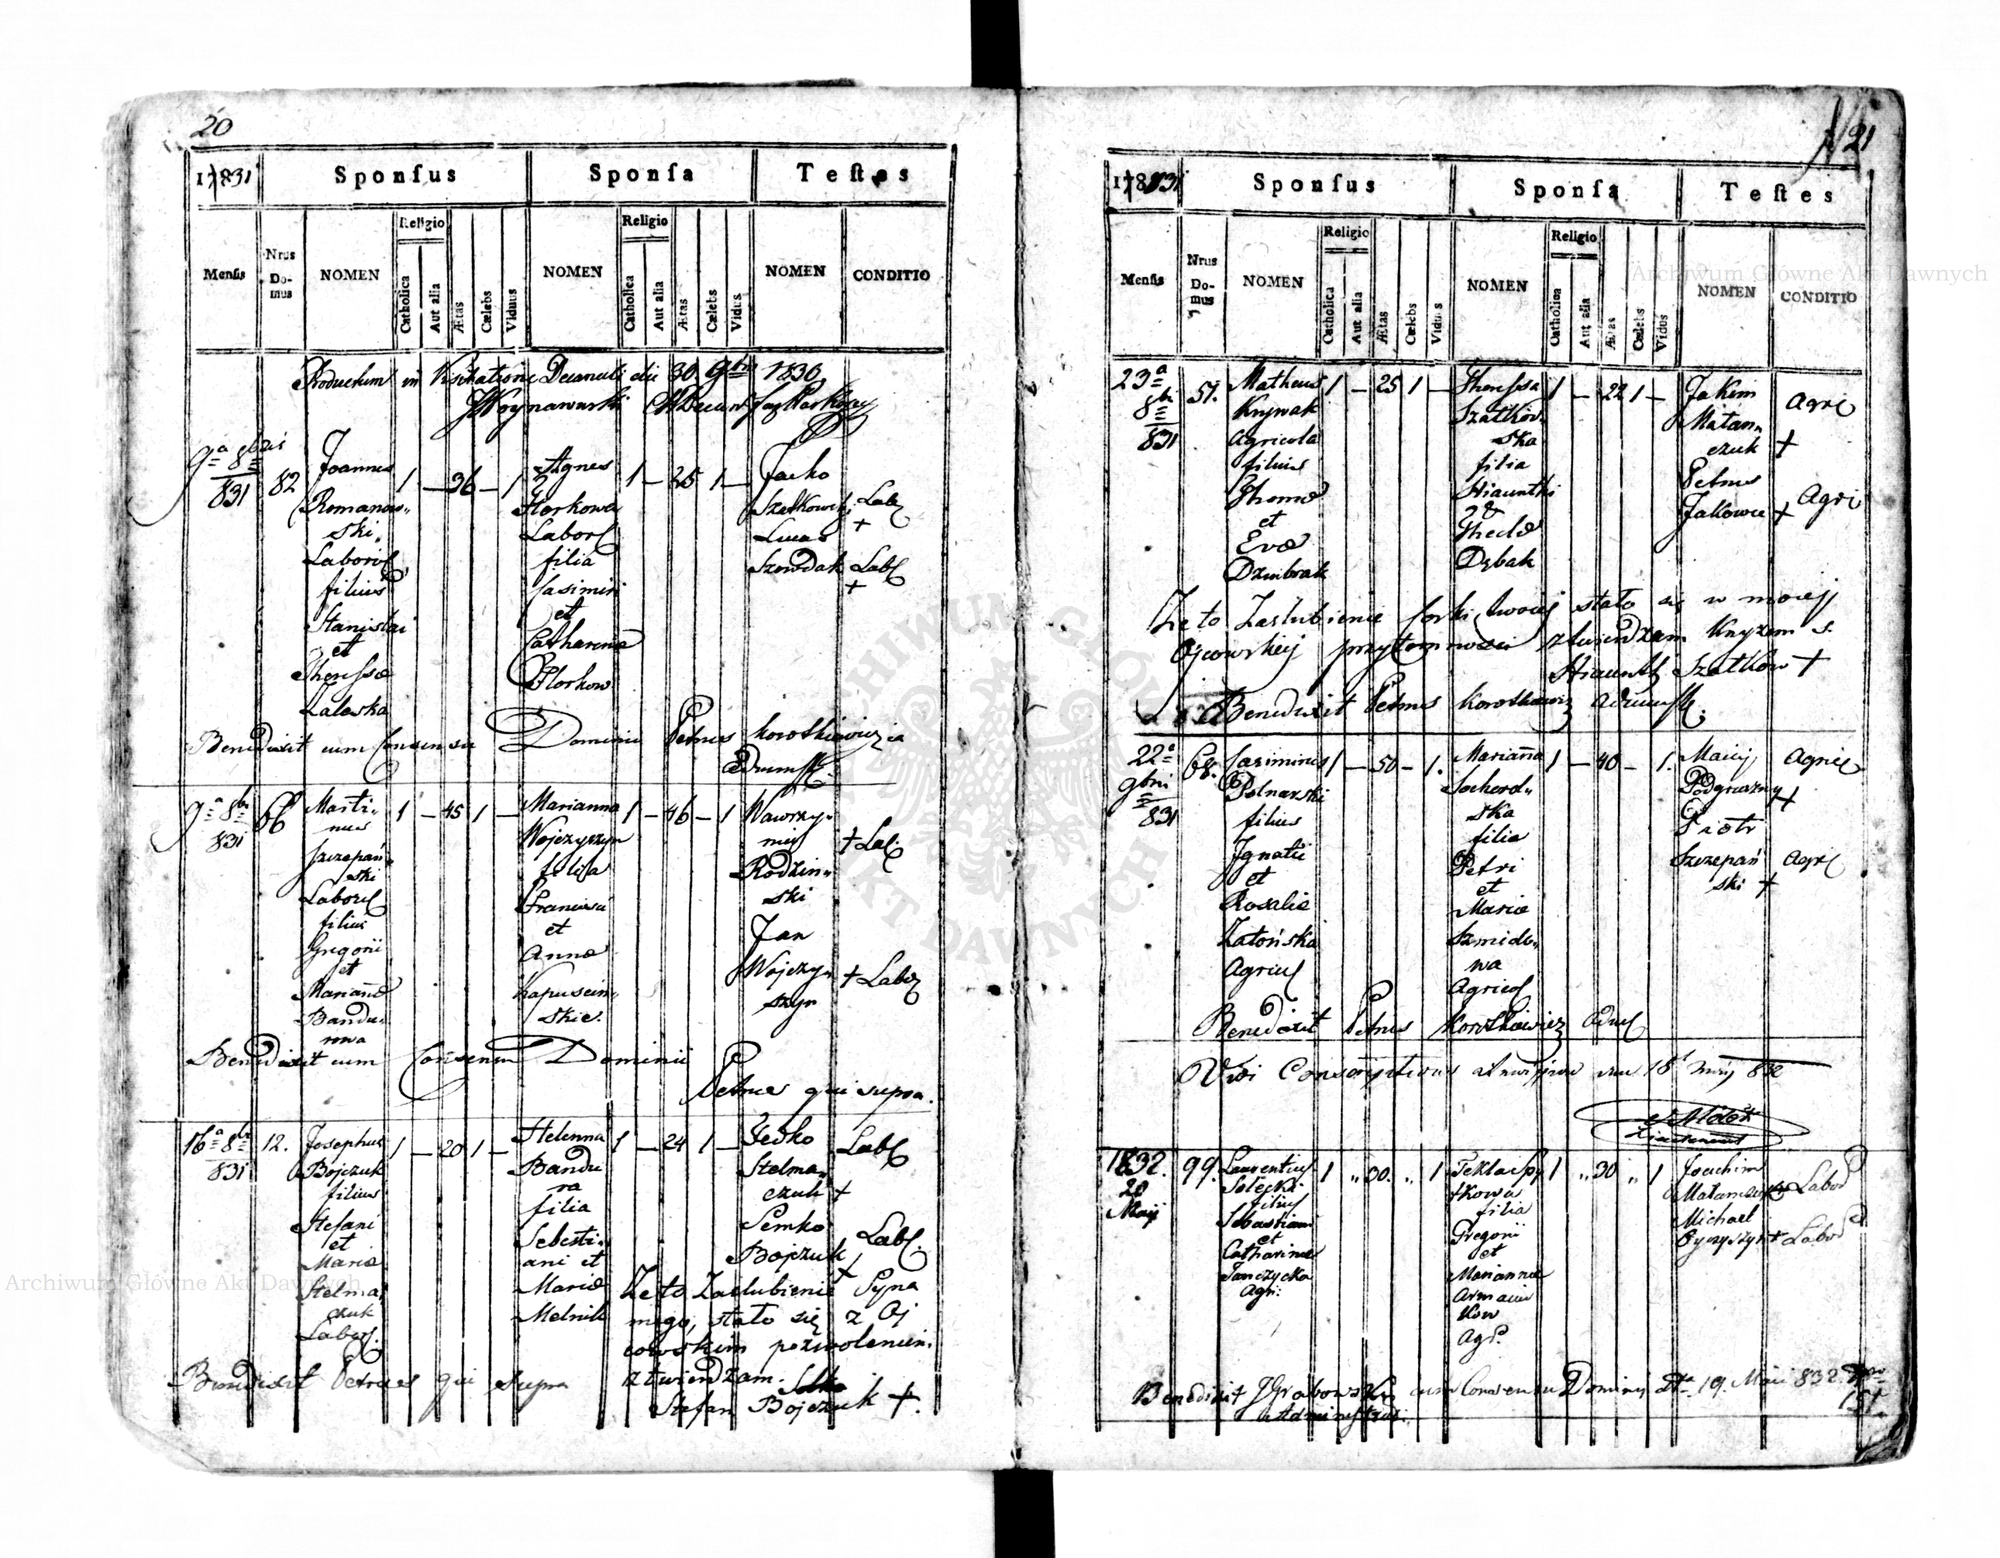 20
17831
Sponſus
Sponſa
Teſtes
Menſis
Nrus Domus
NOMEN
Religio
Catholica
Aut alia
Ætas
Cœlebs
Viduus
NOMEN
Religio
Catholica
Aut alia
Ætas
Cœlebs
Vidus
NOMEN
CONDITIO
Productum in Visitatione Decanali die 30 9bris 1830
9a 8bris
831
82
Joannes
Romanow-
ski
Laborio
filius
Stanislai
et
Theressæ
Zaleska
1 — 36 — 1
Agnes
Horkowa
Labor
filia
Casimiri
et
Catharinæ
Horkow
1 — 25 1 —
Jacko
Lucas
Szewdak
Lab
+
Lab
+
Benedixit cum Consensu Dominii Petrus Korotkiewicz
9a 8br
831
66
Marti-
nus
Szczepań-
ski
Labor
filius
Gregorii
et
Mariannæ
Bandu-
rowa
1 — 45 1 —
Marianna
Wojczyszyn
filia
Francisci
et
Annæ
Kapuscin-
skie.
1 — 46 — 1
Wawrzy-
niej
Rodzin-
ski
Jan
Wojczy-
szyn
+ Lab
+ Lab
Benedixit cum Consensu Dominii
Petrus qui supra.
16a 8br
831
12.
Josephus
Bojczuk
filius
Stefani
et
Mariæ
Stelma-
czuk
Labor
1 — 20 1 —
Helenna
Bandu
ra
filia
Sebesti-
ani et
Mariæ
Melnik
1 — 24 1 —
Fedko
Stelma-
czuk +
Semko
Bojczuk
+
Lab
Lab
Ze to Zaslubienie Syna
mego, stało się z Oj
cowskim pozwoleniem.
ztwierdzam.
Stefan Bojczuk +.
Benedixit Petrus qui supra
21
17831
Sponſus
Sponſa
Teſtes
Menſis
Nrus Domus
NOMEN
Religio
Catholica
Aut alia
Ætas
Cœlebs
Vidus
NOMEN
Religio
Catholica
Aut alia
Ætas
Cœlebs
Vidus
NOMEN
CONDITIO
23a
8bri
831
51.
Matheus
Krywak
Agricola
filius
Thomæ
et
Evæ
Dziubak
1 — 25 1 —
Theressa
Szatkow-
ska
filia
Hiacinthi
&
Theclæ
Dębak
1 — 22 1 —
Jakim
Matam-
czuk +
Petrus
Jakowce +
Agri
Agri
Ze to Zaslubienie Corki twoiej stało się w mojej
Ojcowskiej przytomności ztwierdzam Knyzem S.
Hiacinth Szatkow +
Benedixit Petrus Korotkiewicz Admstr.
22a
9bris
831
68.
Casimirus
Polnarski
filius
Ignatii
et
Rosaliæ
Zatońska
Agricol
1 — 50 — 1.
Marianna
Sochord-
ska
filia
Petri
et
Mariæ
Szmido-
wa
Agricol
1 — 40 — 1.
Maciej
Podgruszny
+
Piotr
Szczepań
ski +
Agric
Agric
Benedixit Petrus Korotkiewicz Adm
1832.
20
Maii
99.
Laurentius
Solecki
filius
Sebastiani
et
Catharinæ
Janczycka
Agri:
1 „ 30. „ 1
Tekla Spy
tkowa
filia
Gregorii
et
Mariannæ
Armaniu
kow
Agr.
1 „ 30 „ 1
Joachim
Michael
Labor
Labor
Benedixit J Grabowski cum Consensu Dominii dto 19. Maii 832. Nro
Administrat.
151.
Archiwum Główne Akt Dawnych
Archiwum Główne Akt Dawnych
ARCHIWUM GŁÓWNE AKT DAWNYCH